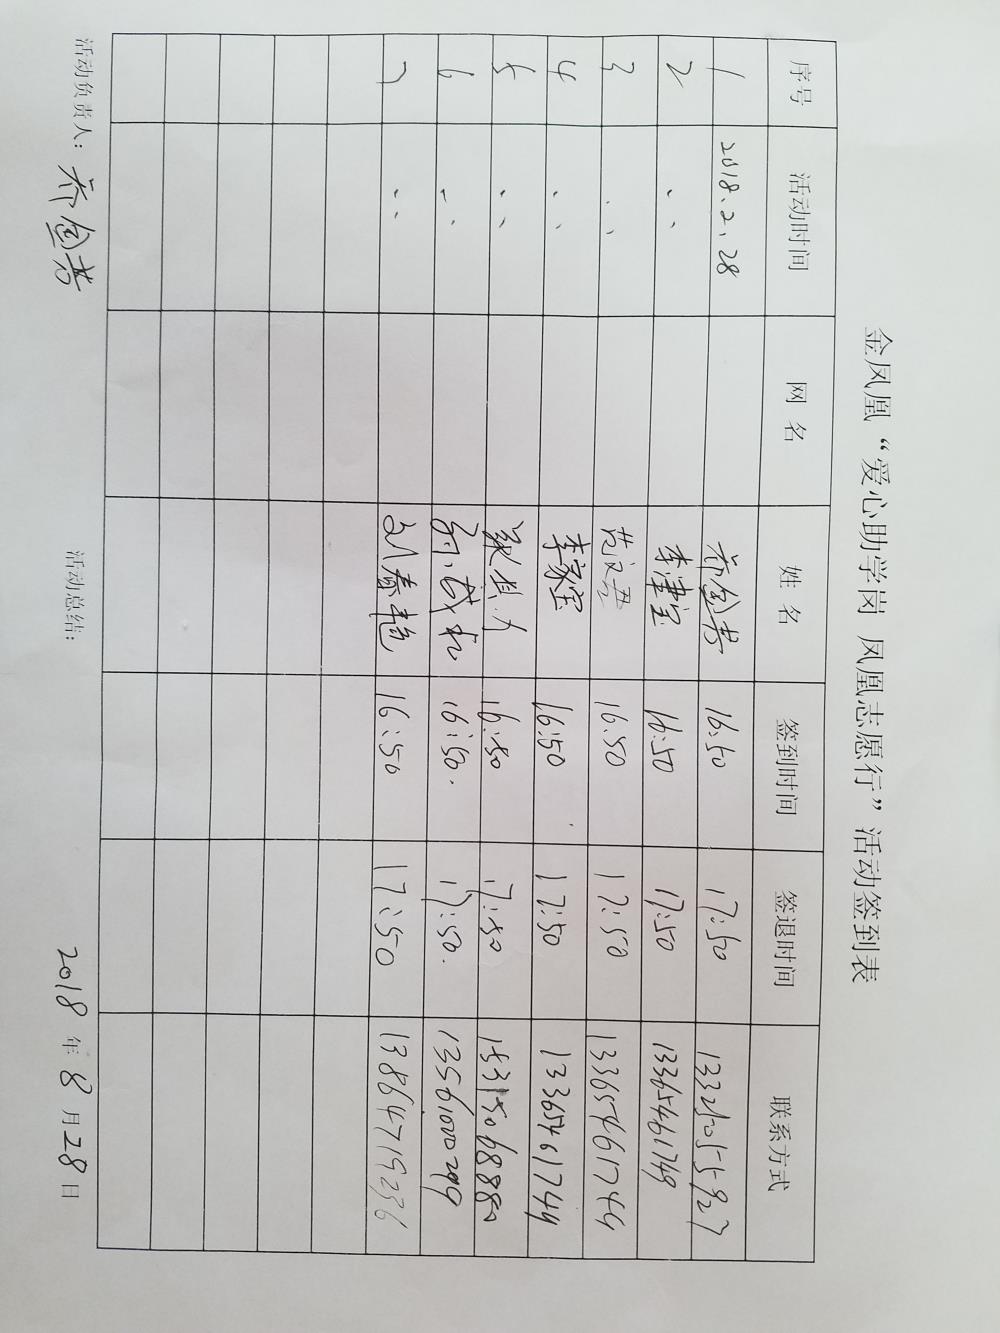 金凤凰“爱心助学岗 凤凰志愿行”活动签到表
序号 活动时间 网 名 姓 名 签到时间 签退时间 联系方式
1 2018.2.28 16:50 17:50
2 〃 李建宝 16:50 17:50 13365461749
3 〃 范文君 16:50 17:50 13365461744
4 〃 李家宝 16:50 17:50 13365461744
5 〃 16:50 17:50 15315068880
6 〃 16:50. 17:50. 13561000299
7 〃 刘春艳 16:50 17:50 13864719236
活动负责人： 活动总结： 2018年8月28日